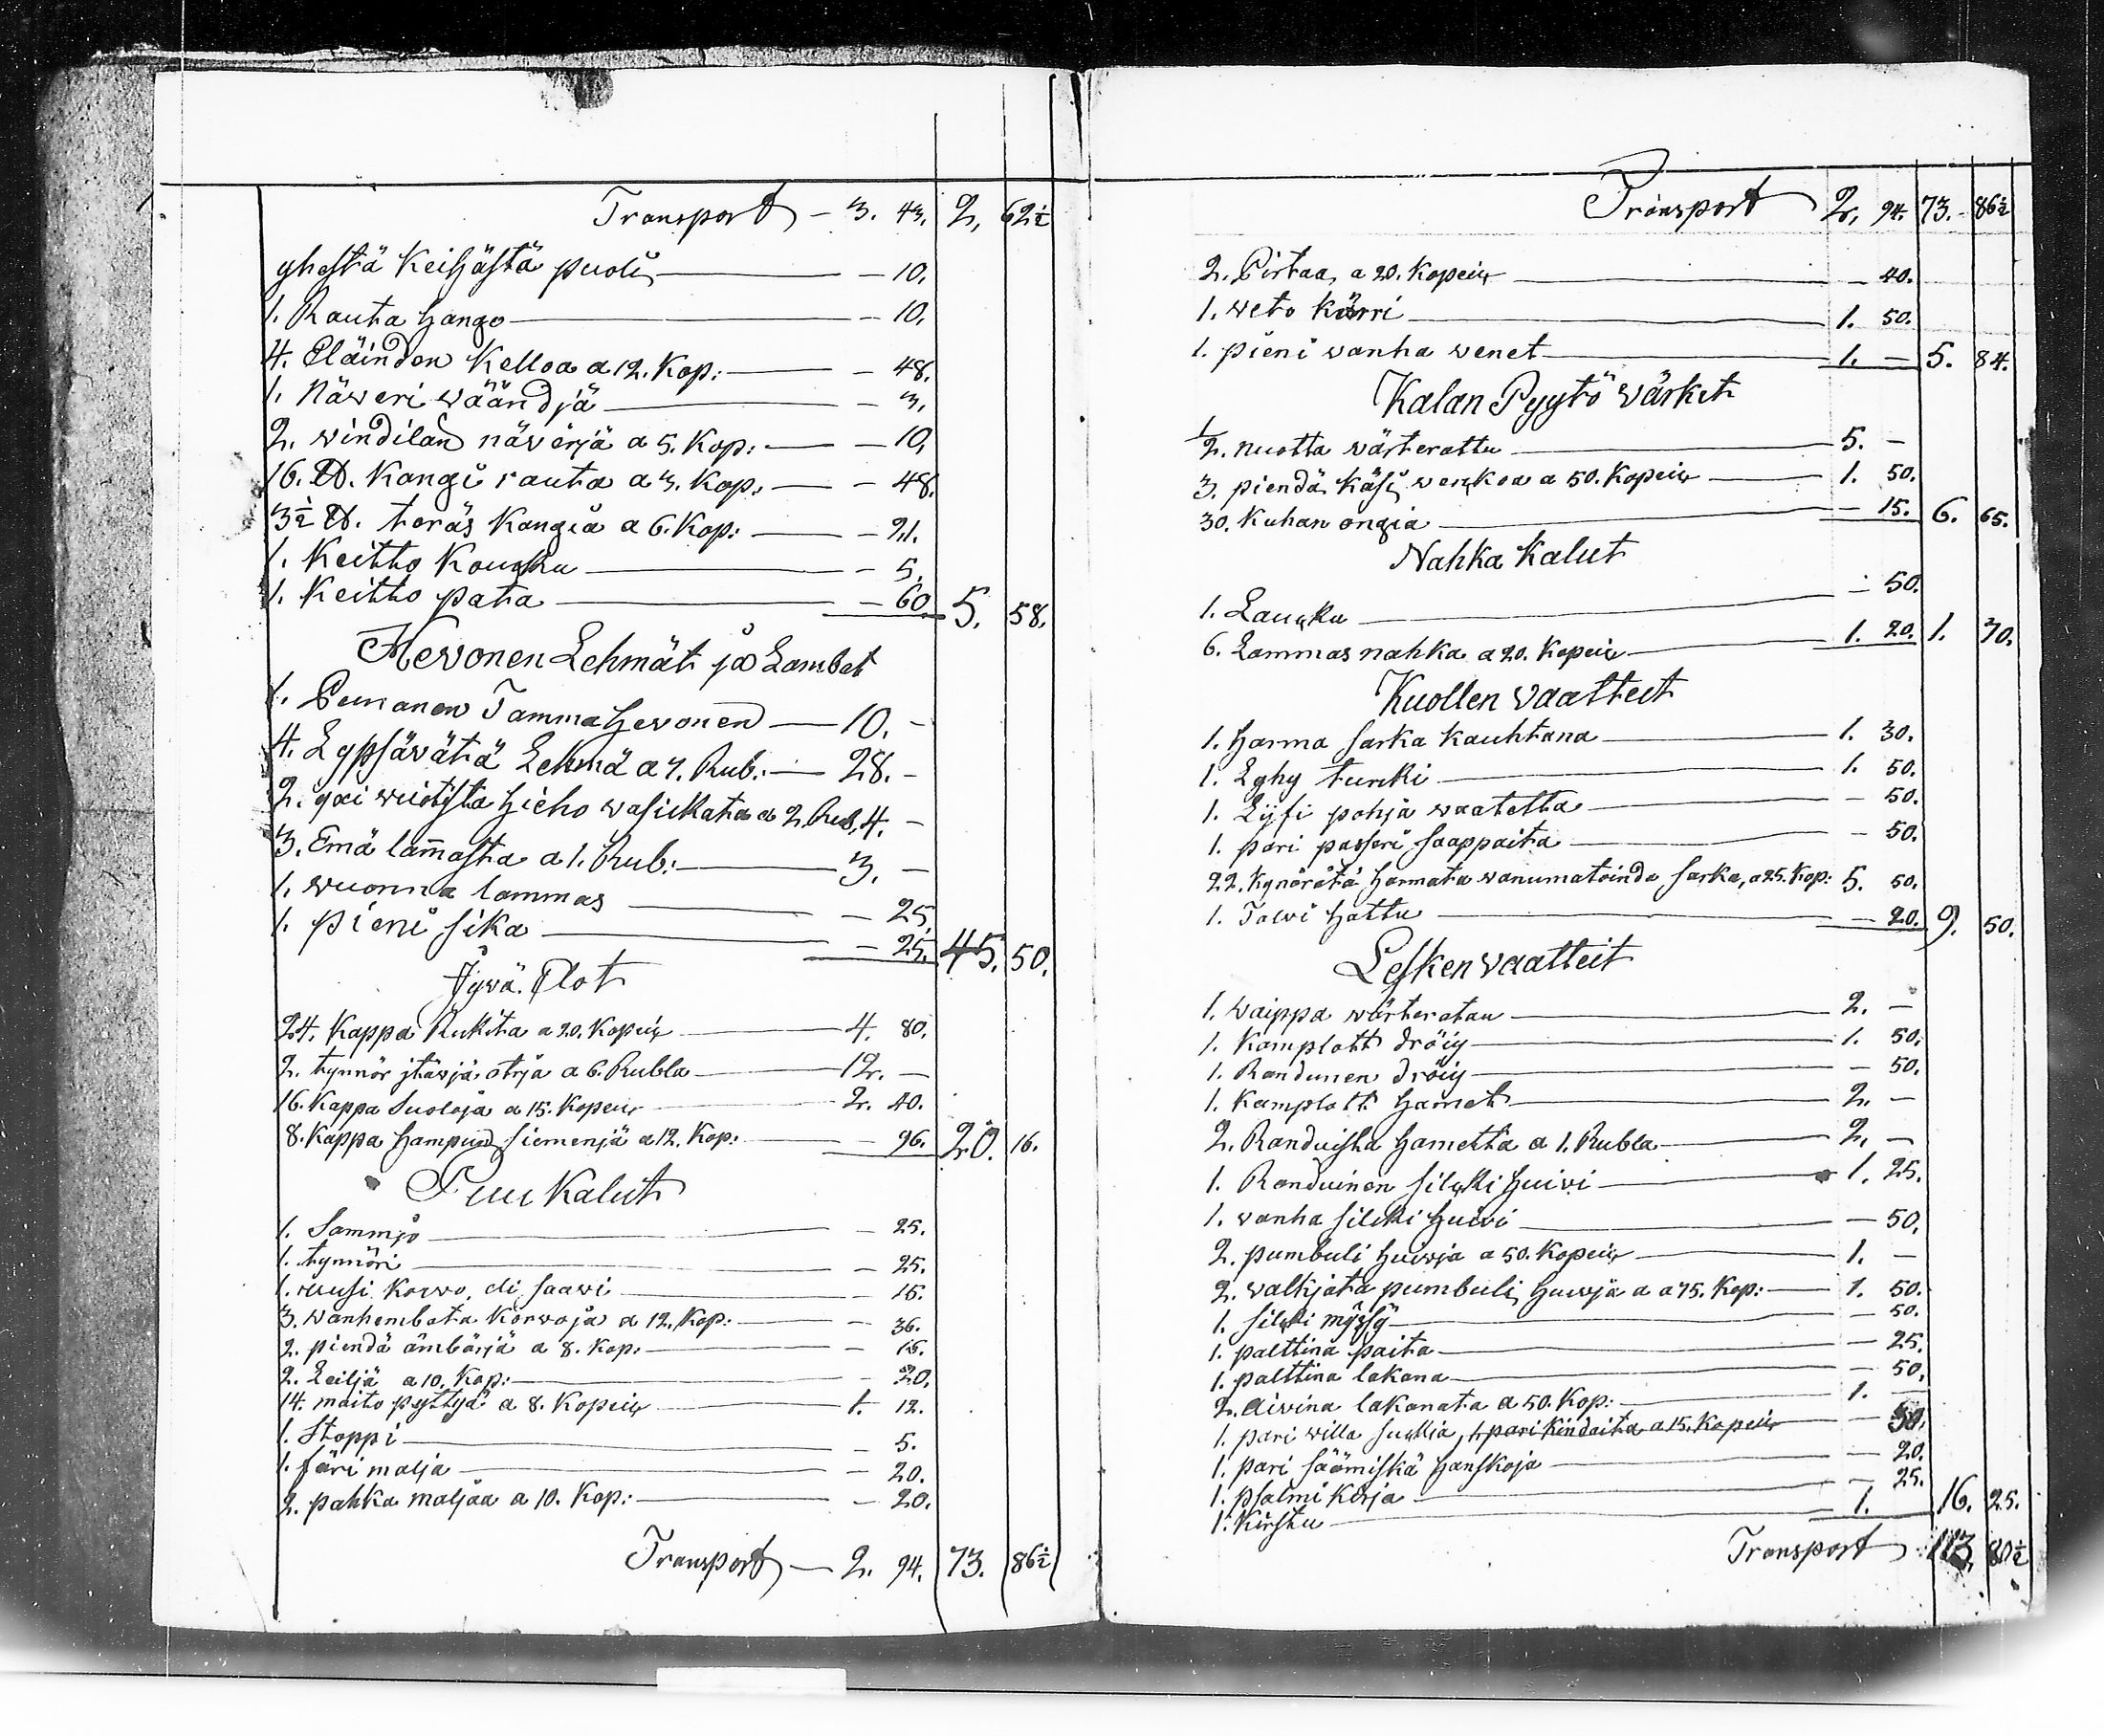 Transport — 3. 43. 2. 62½
yhestä Keihästä puoli — 10.
1. Rauta hango — 10.
4. Eläinden Kelloa a 12. Kop: — 48.
1. Näweri wäändjä — 3.
2. windilän näwerjä a 5. Kop: — 10.
16. ℔. Kangi rauta a 3. Kop. — 48.
3½ ℔. teräs Kangia a 6. Kop: — 21.
1. Keitto Koucku — 5.
1. Keitto pata — 60. 5. 58.
Hevonen Lehmät ja Lambat
1. Punanen Tamma hevonen — 10. —
4. Lypsävätä Lehmä a 7. Rub: — 28. —
2. yxi wuotista hieho wasickata a 2. Rub. 4. —
3. Emä lam̄asta a 1. Rub: — 3. —
1. wuonna lammas — 25.
1. pieni sika — 25. 45. 50.
Jywä Elot
24. Kappa Rukita a 20. Kopeix — 4. 80.
2. tynnör itäwjä otrja a 6. Rubla — 12. —
16. Kappa Suoloja a 15. Kopeix — 2. 40.
8. Kappa hampud siemenjä a 12. Kop: — 96. 20. 16.
Puu Kalut
1. Sammjo — 25.
1. tynnöri — 25.
1. uusi Korwo, eli saawi — 15.
3. wanhembata Korwoja a 12. Kop: — 36.
2. piendä ämbärjä a 8. Kop. — 16.
2. Leiljä a 10. Kop: — 20.
14. maito pyttyä a 8. Kopeix — 1. 12.
1. Stoppi — 5.
1. färi malja — 20.
2. pahka maljaa a 10. Kop: — 20.
Transport — 2. 94. 73. 86½
Transport 2. 94. 73. 86½
2. Pirtaa, a 20. Kopeix — 40.
1. weto Kärri — 1. 50.
1. pieni wanha wenet — 1. — 5. 84.
Kalan Pyytö wärkit
½. nuotta wärterattu — 5. —
3. piendä Käsi werckoa a 50. Kopeix — 1. 50.
30. Kuhan ongia — 15. 6. 65.
Nahka Kalut
1. Laucku — 50.
6. Lammas nahka a 20. Kopeix — 1. 20. 1. 70.
Kuollen vaatteet
1. harma sarka Kauhtana — 1. 30.
1. Lyhy turcki — 1. 50.
1. Lijfi pohja waatetta — 50.
1. pari passari saappaita — 50.
22. Kynörätä harmata wanumatoinda sarka, a 25. Kop: 5. 50.
1. Talwi hattu — 20. 9. 50.
Lesken vaatteit
1. waippa wärteratan — 2. —
1. Kamplott dröiy — 1. 50.
1. Randunen dröiy — 50.
1. Kamplott hamet — 2. —
2. Randuista hametta a 1. Rubla — 2. —
1. Randuinen silcki huivi — 1. 25.
1. wanha silcki huiwi — 50.
2. pumbuli huiwja a 50. Kopeix — 1. —
2. walkjata pumbuli huiwja a a 75. Kop: — 1. 50.
1. silcki myssy — 50.
1. palttina paita — 25.
1. palttina lakana — 50.
2. aivina lakanata a 50. Kop: — 1. —
1. pari willa suckia, 1. pari Kindaita a 15. Kopeix — 30.
1. pari säämiskä hanskoja — 20.
1. psalmi Kirja — 25.
1. Kirstu — 1. 16. 25.
Transport 113. 80½